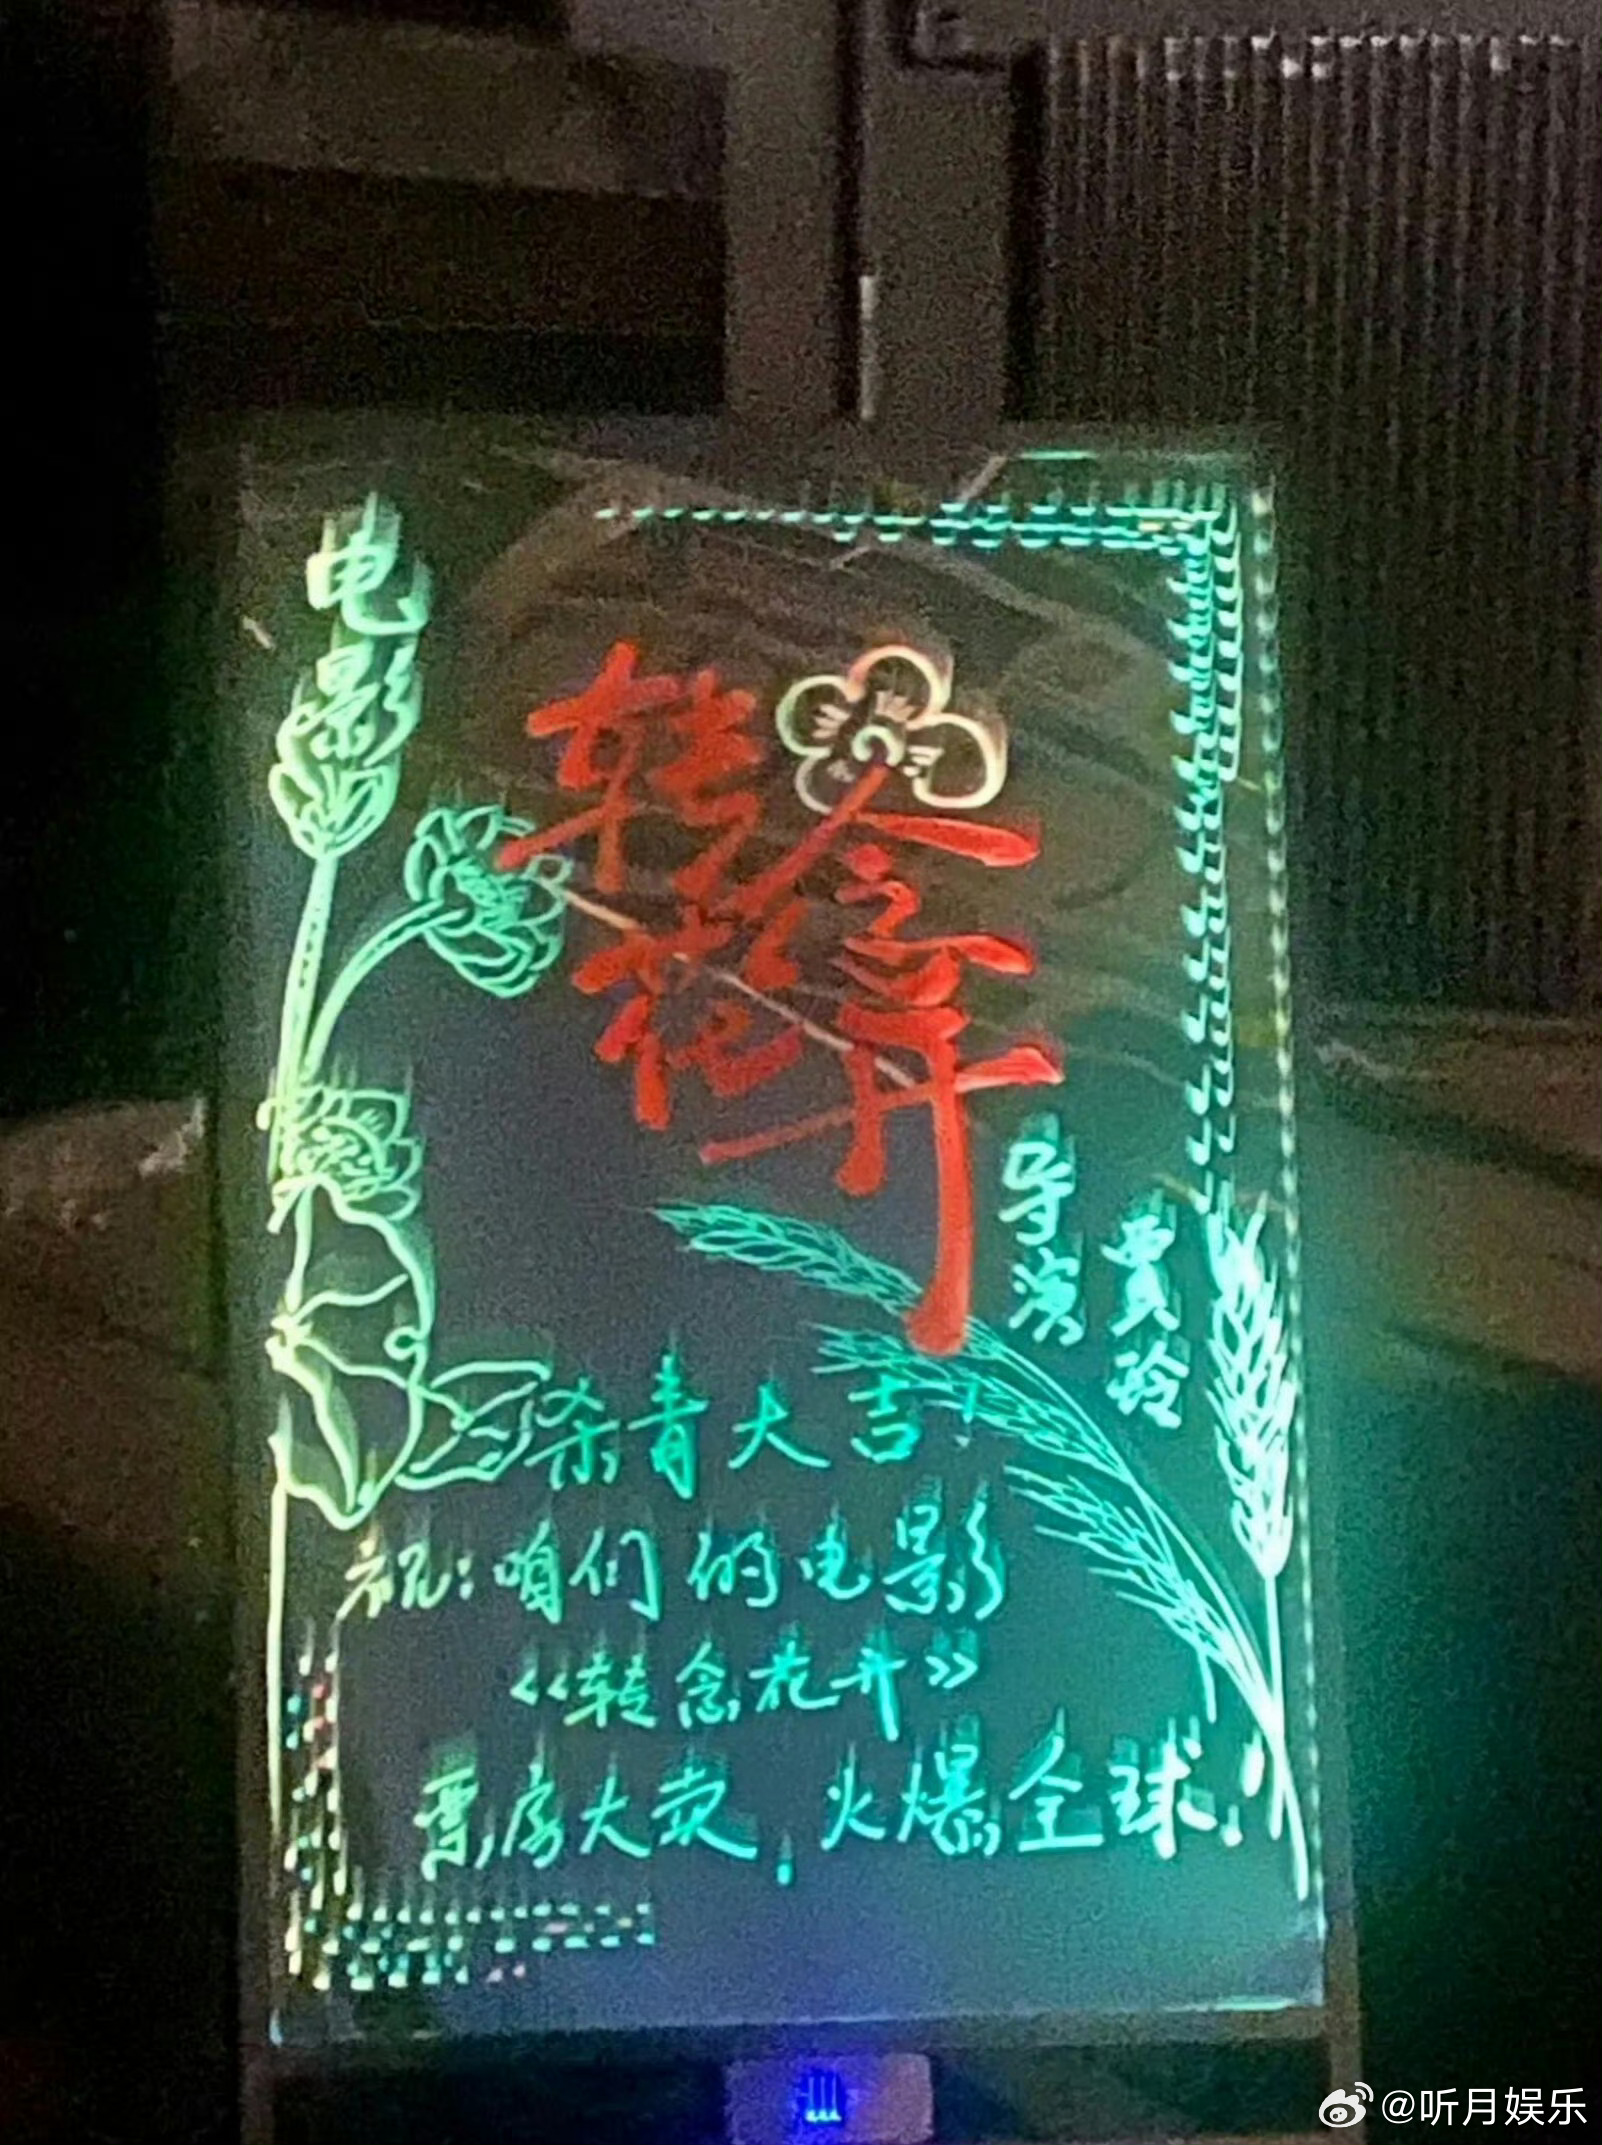 电影
转念
花开
导演
贾玲
杀青大吉!
祝:咱们的电影
《转念花开》
票房大卖,火爆全球!
@听月娱乐